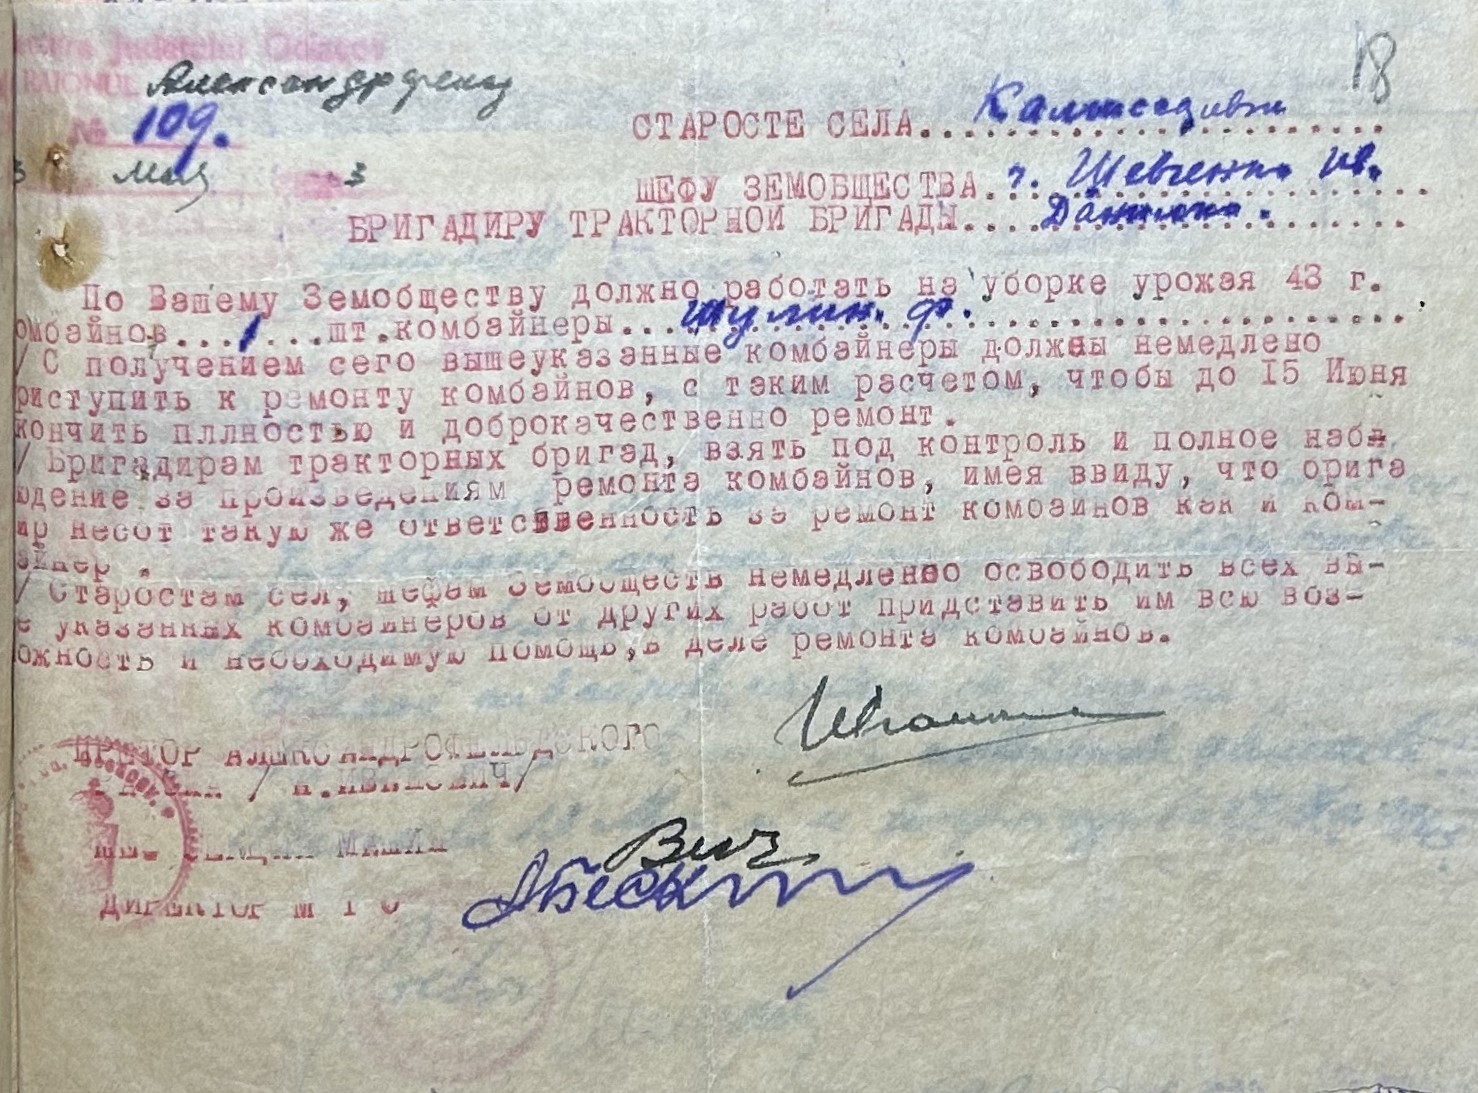 18
Judetului Odessa
RAIONUL Александрфельд
№ 109.
Мая 3
СТАРОСТЕ СЕЛА....................
ШЕФУ ЗЕМОБЩЕСТВА. г. Шевченко Ив.
БРИГАДИРУ ТРАКТОРНОЙ БРИГАДЫ....................
По Вашему Земобществу должно работать на уборке урожая 43 г.
омбайнов...1...шт.комбайнеры... Шулик. Ф.
/ С получением сего вышеуказанные комбайнеры должны немедлено
риступить к ремонту комбайнов, с таким расчетом, чтобы до 15 Июня
кончить пллностью и доброкачественно ремонт.
/ Бригадирам тракторных бригад, взять под контроль и полное наб
юдение за произведениям ремонта комбайнов, имея ввиду, что брига
ир несот такую же ответственность за ремонт комбайнов как и ком-
айнер .
/ Старостам сел, шефам Земобществ немедленно освободить всех вы-
е указанных комбайнеров от других работ придставить им всю воз-
ожность и необходимую помощь,в деле ремонта комбайнов.
ПРЕТОР АЛЕКСАНДРОФЕЛЬДСКОГО
РАЙОНА
СЕКЦИИ МАШИН
ДИРЕКТОР М Т С